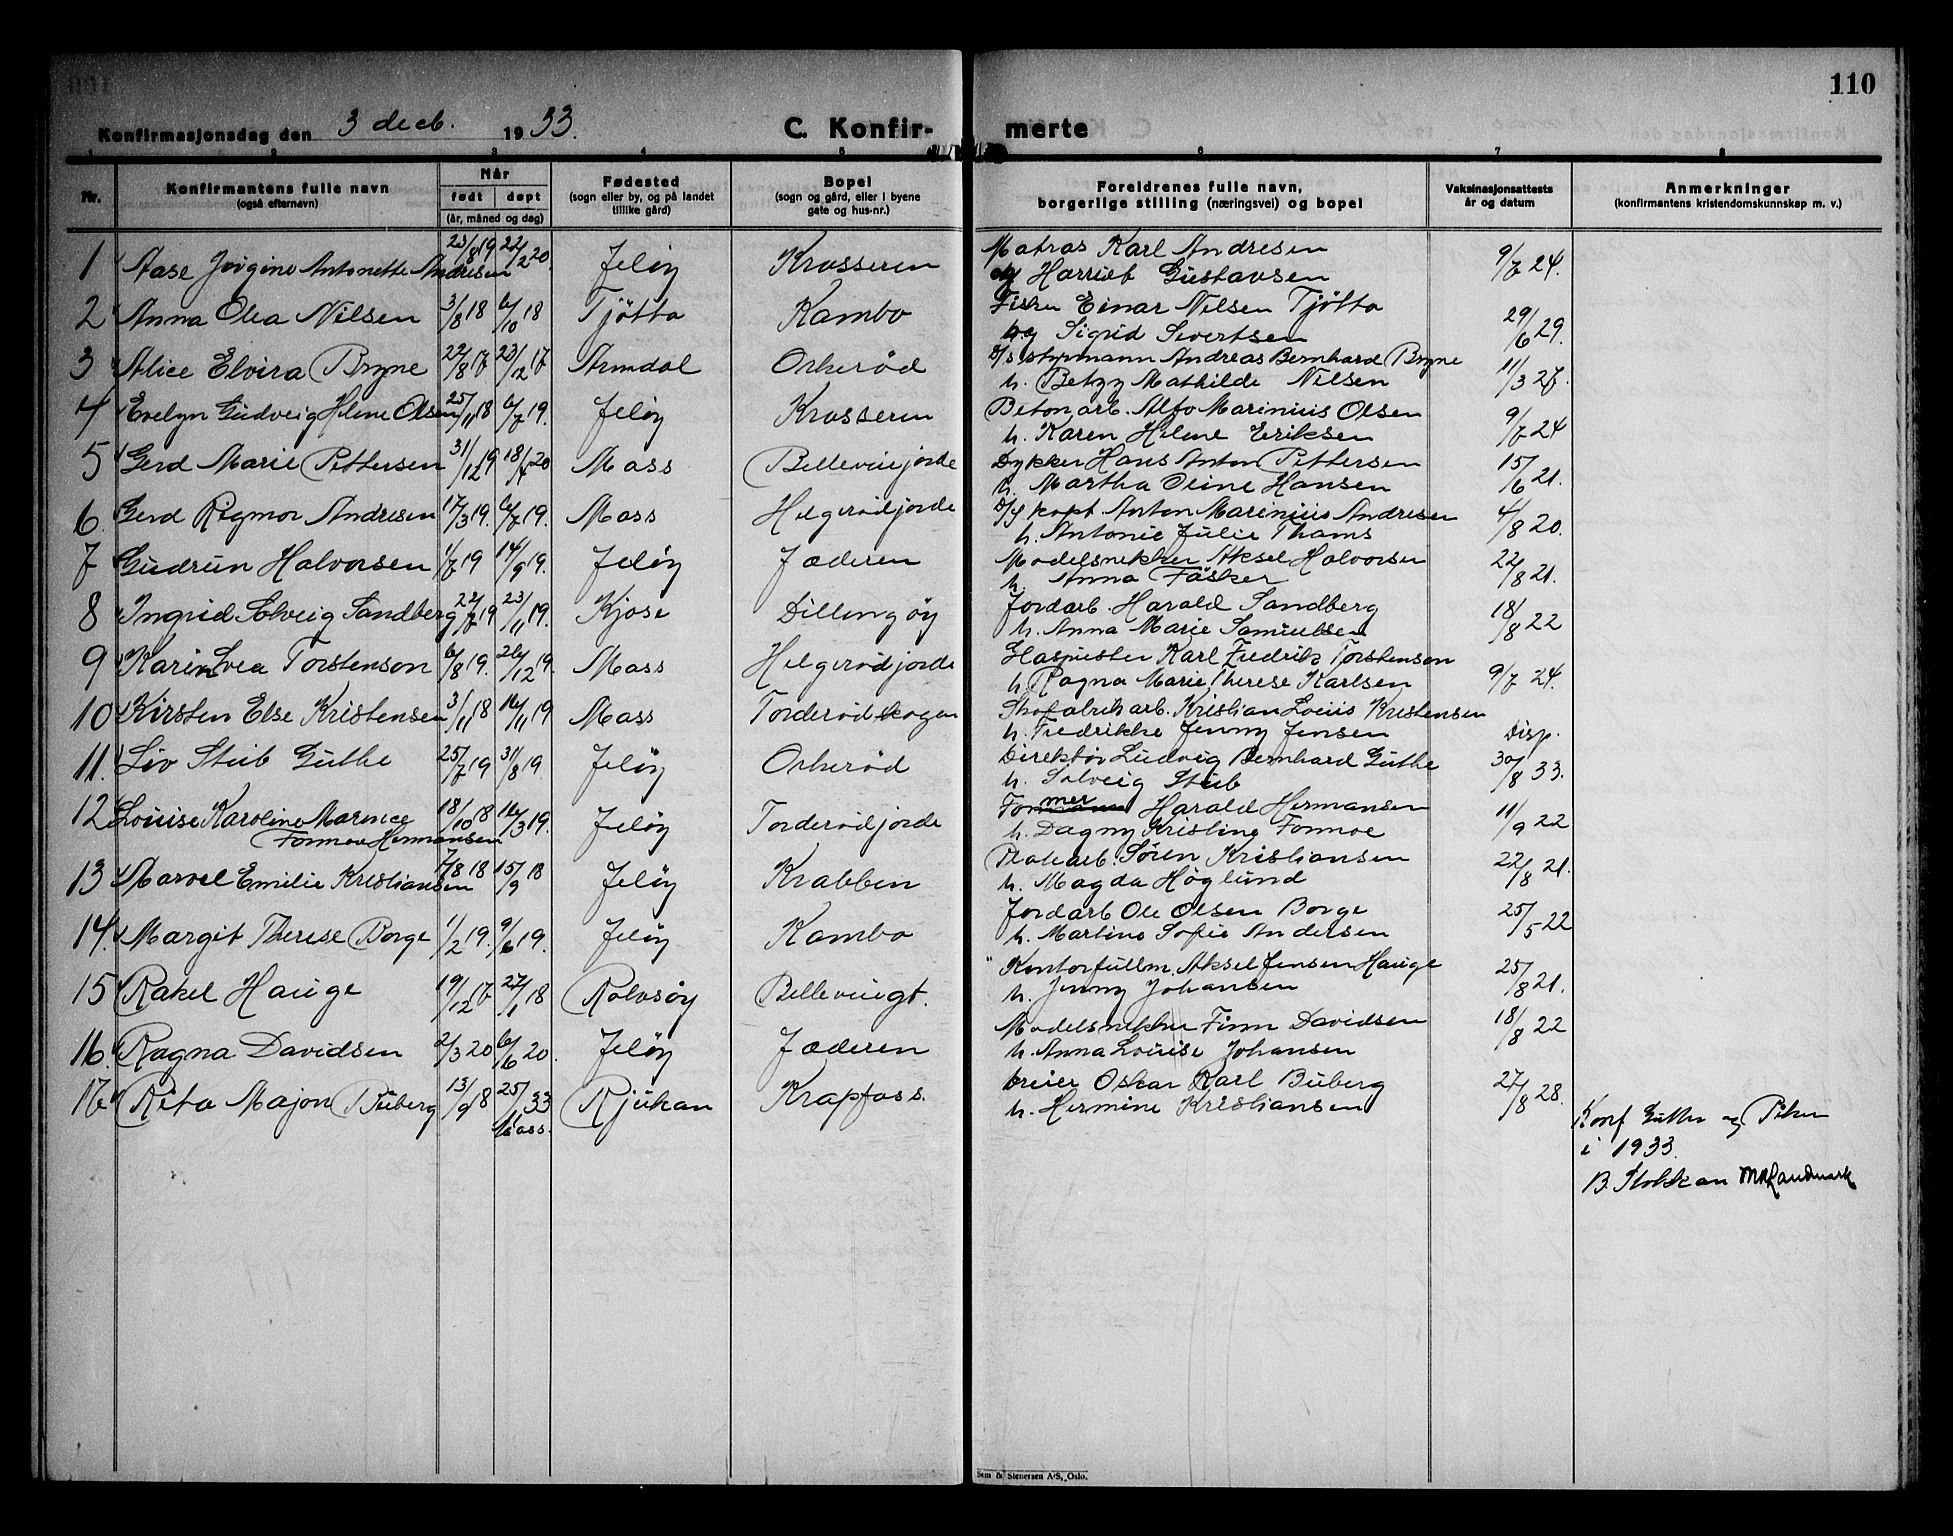 110
Konfirmasjonsdag den 3 decb. 1933.
C. Konfir- merte
1 2 3 4 5 6 7 8
Nr. Konfirmantens fulle navn (også efternavn) Når født døpt (år, måned og dag) Fødested (sogn eller by, og på landet tillike gård) Bopel (sogn og gård, eller i byene gate og hus-nr.) Foreldrenes fulle navn, borgerlige stilling (næringsvei) og bopel Vaksinasjonsattests år og datum Anmerkninger (konfirmantens kristendomskunnskap m. v.)
1 Aase Jørgine Antonette Andresen 23/8 19 22/2 20. Jeløy Krosseren Matros Karl Andresen
og Harriet Gustavsen 9/7 24.
2 Anna Olea Nilsen 3/8 18 6/10 18 Tjøtta Kambo Fisker Einar Nilsen Tjøtta
og Sigrid Sivertsen 29/6 29.
3 Alice Elvira Bryne 22/8 17 23/12 17 Armdal Orkerød D/s styrmann Andreas Bernhard Bryne
h. Betzy Mathilde Nilsen 11/3 27.
4 Evelyn Gudveig Helene Olsen 25/11 18 6/7 19. Jeløy Krosseren Beton,arb. Alfo Marinius Olsen
h. Karen Helene Eriksen 9/7 24
5 Gerd Marie Pettersen 31/12 19 18/4 20 Moss Bellevuejorde Dykker Hans Anton Pettersen
h. Martha Oline Hansen 15/6 21.
6 Gerd Ragmor Andresen 17/3 19. 6/7 19. Moss Helgerødjorde Anton Marinius Andresen
h. Antonie Julie Thams 4/8 20.
7 Gudrun Halvorsen 1/7 19 14/9 19. Jeløy Jæderen Modelsnekker Aksel Halvorsen
h. Anna Fäsker 22/8 21.
8 Ingrid Solveig Sandberg 22/7 19 23/11 19. Kjose Dillingøy Jordarb. Harald Sandberg
h. Anna Marie Samuelsen 18/8 22
9 Karin Svea Torstenson 6/8 19. 26/12 19. Moss Helgerødjorde Glaspuster Karl Fredrik Torstenson
h. Ragna Marie Therese Karlsen 9/7 24.
10 Kirsten Else Kristensen 3/11 18 16/11 19 Moss Torderødskogen Skofabrikarb. Kristian Louis Kristensen
h. Fredrikke Jenny Jensen Disp.
11. Liv Stub Guthe 25/7 19 31/8 19. Jeløy Orkerød Direktör Ludvig Bernhard Guthe
h. Solveig Stub 30/8 33.
12 Louise Karoline Marence
Formoe Hermansen 18/10 18 16/3 19. Jeløy Torderødjorde Former Harald Hermansen
h. Dagny Kristine Formoe 11/9 22
13 Marvel Emilie Kristiansen 7/8 18 15/9 18 Jeløy Krabben Platearb. Søren Kristiansen
h. Magda Höglund 22/8 21.
14. Margit Therese Borge 1/2 19. 9/6 19. Jeløy Kambo Jordarb Ole Olsen Borge
h. Martine Sofie Andersen 25/5 22
15 Rakel Hauge 19/12 17 27/1 18 Rolvsøy Bellevuegt. Kontorfullm. Aksel Jensen Hauge
h. Jenny Johansen 25/8 21.
16. Ragna Davidsen 2/3 20 6/6 20. Jeløy Jæderen Modelsnekker Finn Davidsen
h. Anna Louise Johansen 18/8 22
17 Rita Majon Buberg 13/9 18 25/11 33 Moss. Rjukan Krapfoss. Dreier Oskar Karl Buberg
h. Hermine Kristiansen 27/8 28.
Konf Gutter og Piker
i 1933.
B. MRLandmark
Sem & Stenersen A/S, Oslo.